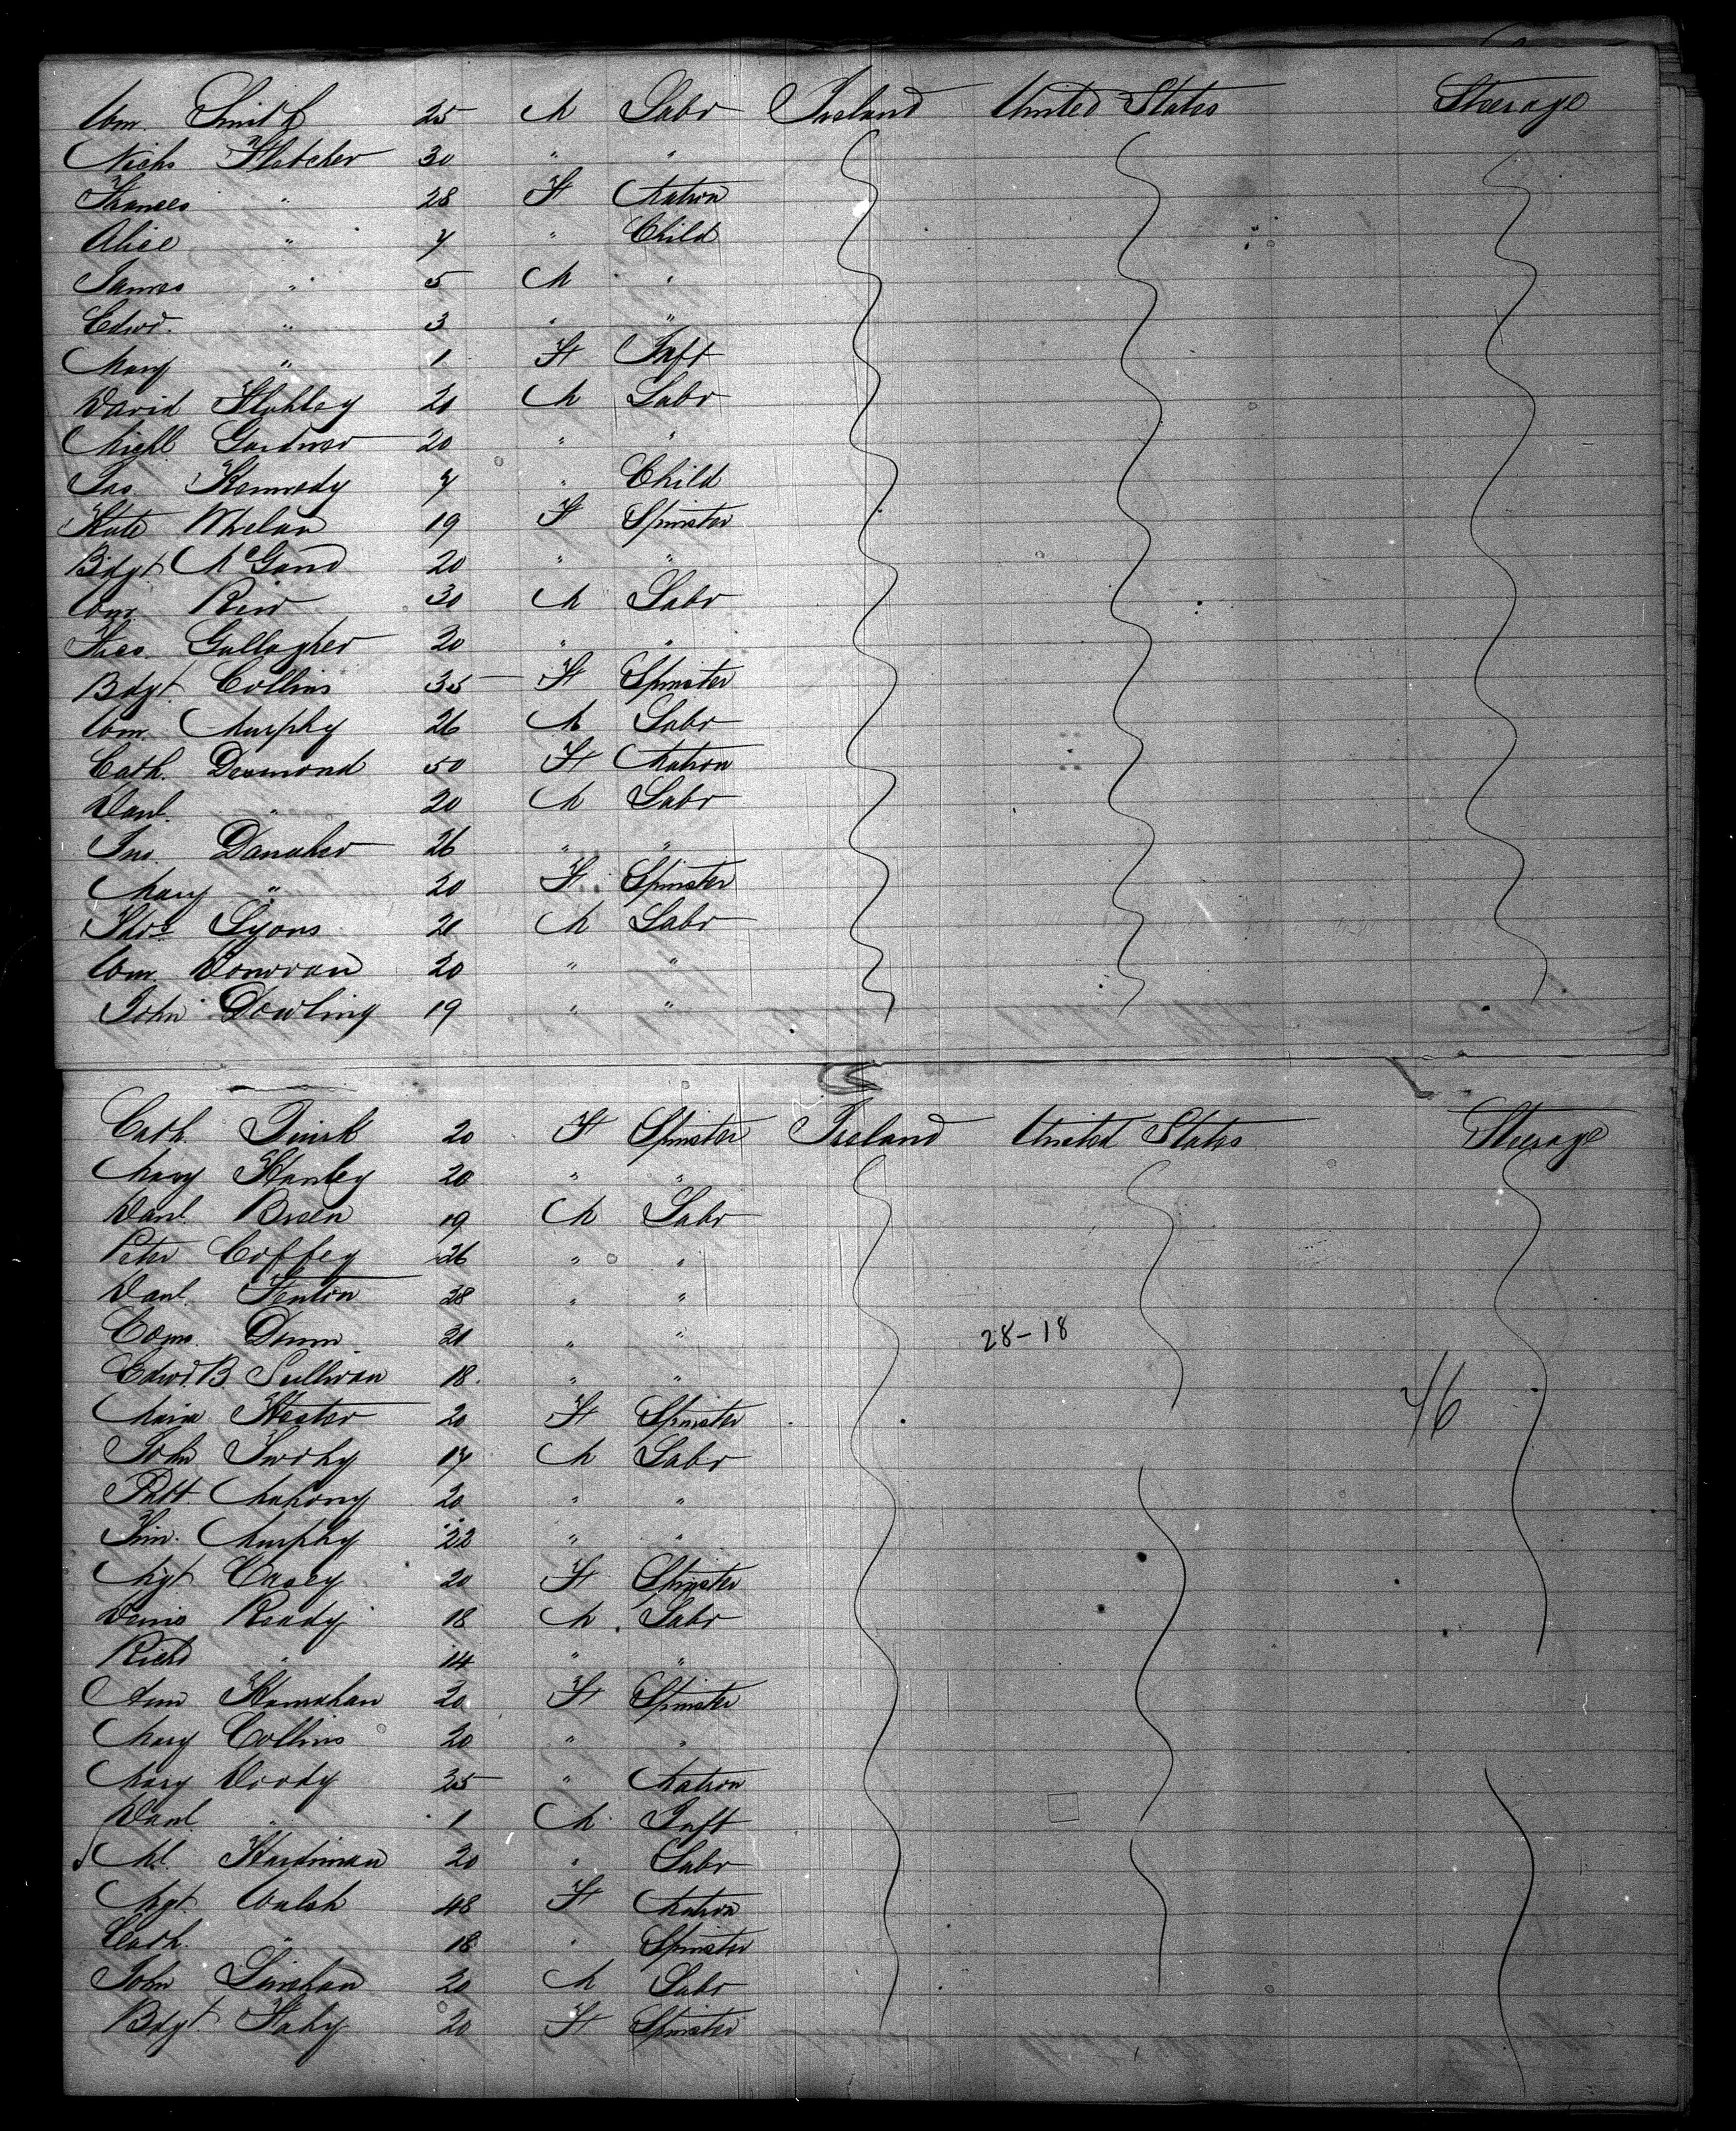 Wm. Smith 25 M Labr Ireland United States Steerage
Nichs Fletcher 30 " "
Frances " 28 F Matron
Alice " 7 " Child
James " 5 M "
Edwd. " 3 " "
Mary " 1 F Inft
David Flahley 20 M Labr
Michl Gardner 20 " "
Jas Kennedy 7 " Child
Kate Whelan 19 F Spinster
Bdgt McGann 20 " "
Wm. 30 M Labr
Thos. Gallagher 30 " "
Bdgt. Collins 35 F Spinster
Wm. Murphy 26 M Labr
Cath. Desmond 50 F Matron
Danl. " 20 M Labr
Jno. Danaher 26 " "
Mary " 20 F Spinster
Thos Lyons 21 M Labr
Wm. Donovan 20 " "
John Dowling 19 " "
Cath. Quirk 20 F Spinster Ireland United States Steerage
Mary Hanley 20 " "
Danl. Breen 19 M Labr
Peter Coffey 26 " "
Danl. Fenton 28 " "
Edmd. Dunn 21 " " 28-18
Edwd. B. Sullivan 18 " "
Maria Hester 20 F Spinster 46
John Twohy 17 M Labr
Patt. Mahony 20 " "
Tim. Murphy 22 " "
Mgt. Casey 20 F Spinster
Denis Ready 18 M Labr
Richd " 14 " "
Ann Hanrahan 20 F Spinster
Mary Collins 20 " "
Mary Doody 25 " Matron
Danl. " 1 M Inft
Ml. Hardiman 20 " Labr
Mgt. Walsh 48 F Matron
Cath. " 18 " Spinster
John Linehan 20 M Labr
Bdgt. Fahy 20 F Spinster